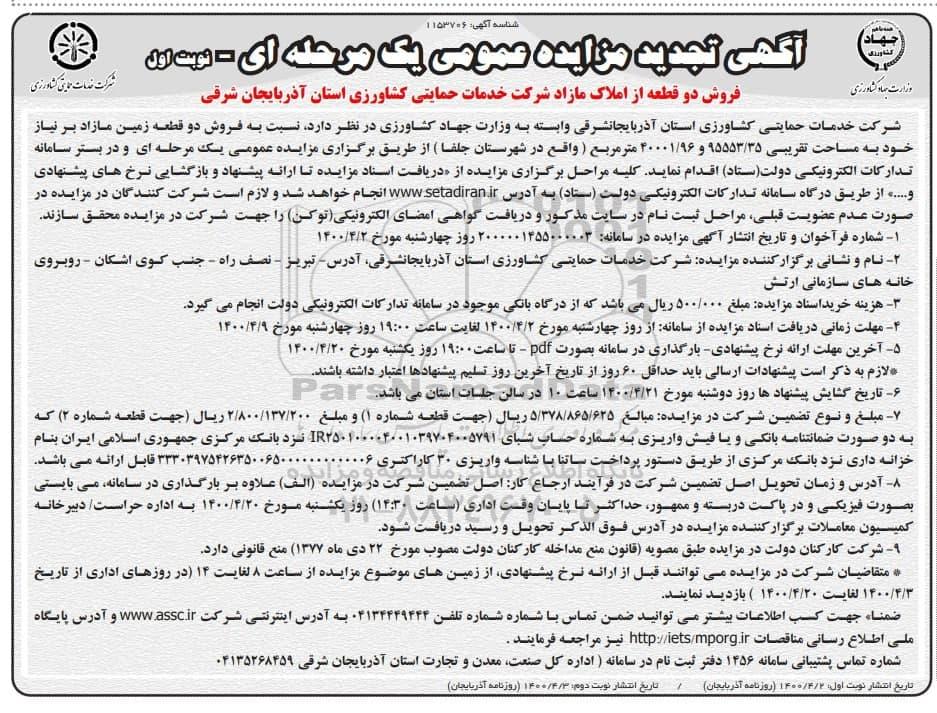 شناسه آگهی: ۱۱۵۳۷۰۶
آگهی تجدید مزایده عمومی یک مرحله ای - نوبت اول
وزارت جهاد کشاورزی
شرکت خدمات حمایتی کشاورزی
فروش دو قطعه از املاک مازاد شرکت خدمات حمایتی کشاورزی استان آذربایجان شرقی
شرکت خدمات حمایتی کشاورزی استان آذربایجانشرقی وابسته به وزارت جهاد کشاورزی در نظر دارد، نسبت به فروش دو قطعه زمین مازاد بر نیاز
خود به مساحت تقریبی ۹۵۵۵۳/۳۵ و ۴۰۰۰۱/۹۶ مترمربع ( واقع در شهرستان جلفا ) از طریق برگزاری مزایده عمومی یک مرحله ای و در بستر سامانه
تدارکات الکترونیکی دولت(ستاد) اقدام نماید. کلیه مراحل برگزاری مزایده از «دریافت اسناد مزایده تا ارائه پیشنهاد و بازگشایی نرخ های پیشنهادی
و....» از طریق درگاه سامانه تدارکات الکترونیکی دولت (ستاد) به آدرس www.setadiran.ir انجام خواهد شد و لازم است شرکت کنندگان در مزایده در
صورت عدم عضویت قبلی، مراحل ثبت نام در سایت مذکور و دریافت گواهی امضای الکترونیکی(توکن) را جهت شرکت در مزایده محقق سازند.
۱- شماره فرآخوان و تاریخ انتشار آگهی مزایده در سامانه: ۲۰۰۰۰۰۱۴۵۵۰۰۰۰۰۳ روز چهارشنبه مورخ ۱۴۰۰/۴/۲
۲- نام و نشانی برگزارکننده مزایده: شرکت خدمات حمایتی کشاورزی استان آذربایجانشرقی، آدرس- تبریز - نصف راه - جنب کوی اشکان - روبروی
خانه های سازمانی ارتش
۳- هزینه خریداسناد مزایده: مبلغ ۵۰۰/۰۰۰ ریال می باشد که از درگاه بانکی موجود در سامانه تدارکات الکترونیکی دولت انجام می گیرد.
۴- مهلت زمانی دریافت اسناد مزایده از سامانه: از روز چهارشنبه مورخ ۱۴۰۰/۴/۲ لغایت ساعت ۱۹:۰۰ روز چهارشنبه مورخ ۱۴۰۰/۴/۹
۵- آخرین مهلت ارائه نرخ پیشنهادی- بارگذاری در سامانه بصورت pdf - تا ساعت ۱۹:۰۰ روز یکشنبه مورخ ۱۴۰۰/۴/۲۰
*لازم به ذکر است پیشنهادات ارسالی باید حداقل ۶۰ روز از تاریخ آخرین روز تسلیم پیشنهادها اعتبار داشته باشند.
۶- تاریخ گشایش پیشنهاد ها روز دوشنبه مورخ ۱۴۰۰/۴/۲۱ ساعت ۱۰ در سالن جلسات استان می باشد.
۷- مبلغ و نوع تضمین شرکت در مزایده: مبالغ ۵/۳۷۸/۸۶۵/۶۲۵ ریال (جهت قطعه شماره ۱) و مبلغ ۲/۸۰۰/۱۳۷/۲۰۰ ریال (جهت قطعه شماره ۲) که
به دو صورت ضمانتنامه بانکی و یا فیش واریزی به شماره حساب شبای IR۲۵۰۱۰۰۰۰۴۰۰۱۰۳۹۷۰۴۰۰۵۷۹۱ نزد بانک مرکزی جمهوری اسلامی ایران بنام
خزانه داری نزد بانک مرکزی از طریق دستور پرداخت ساتنا با شناسه واریزی ۳۰ کاراکتری ۳۳۳۰۳۹۷۵۴۲۶۳۵۰۰۶۵۰۰۰۰۰۰۰۰۰۰۰۰۶ قابل ارائه می باشد.
۸- آدرس و زمان تحویل اصل تضمین شرکت در فرآیند ارجاع کار: اصل تضمین شرکت در مزایده (الف) علاوه بر بارگذاری در سامانه، می بایستی
بصورت فیزیکی و در پاکت دربسته و ممهور، حداکثر تا پایان وقت اداری (ساعت ۱۴:۳۰) روز یکشنبه مورخ ۱۴۰۰/۴/۲۰ به اداره حراست/ دبیرخانه
کمیسیون معاملات برگزار کننده مزایده در آدرس فوق الذکر تحویل و رسید دریافت شود.
۹- شرکت کارکنان دولت در مزایده طبق مصوبه (قانون منع مداخله کارکنان دولت مصوب مورخ ۲۲ دی ماه ۱۳۷۷) منع قانونی دارد.
* متقاضیان شرکت در مزایده می توانند قبل از ارائه نرخ پیشنهادی، از زمین های موضوع مزایده از ساعت ۸ لغایت ۱۴ (در روزهای اداری از تاریخ
۱۴۰۰/۴/۳ لغایت ۱۴۰۰/۴/۲۰ ) بازدید نمایند.
ضمناً جهت کسب اطلاعات بیشتر می توانید ضمن تماس با شماره شماره تلفن ۰۴۱۳۴۴۴۹۴۴۴ به آدرس اینترنتی شرکت www.assc.ir و آدرس پایگاه
ملی اطلاع رسانی مناقصات http://iets/mporg.ir نیز مراجعه فرمایند .
شماره تماس پشتیبانی سامانه ۱۴۵۶ دفتر ثبت نام در سامانه ( اداره کل صنعت، معدن و تجارت استان آذربایجان شرقی ۰۴۱۳۵۲۶۸۴۵۹
تاریخ انتشار نوبت اول: ۱۴۰۰/۴/۲ (روزنامه آذربایجان) / تاریخ انتشار نوبت دوم: ۱۴۰۰/۴/۳ (روزنامه آذربایجان)
ParsNamadData
پایگاه اطلاع رسانی مناقصه و مزایده
۰۲۱-۸۸۳۴۹۶۷۰-۵